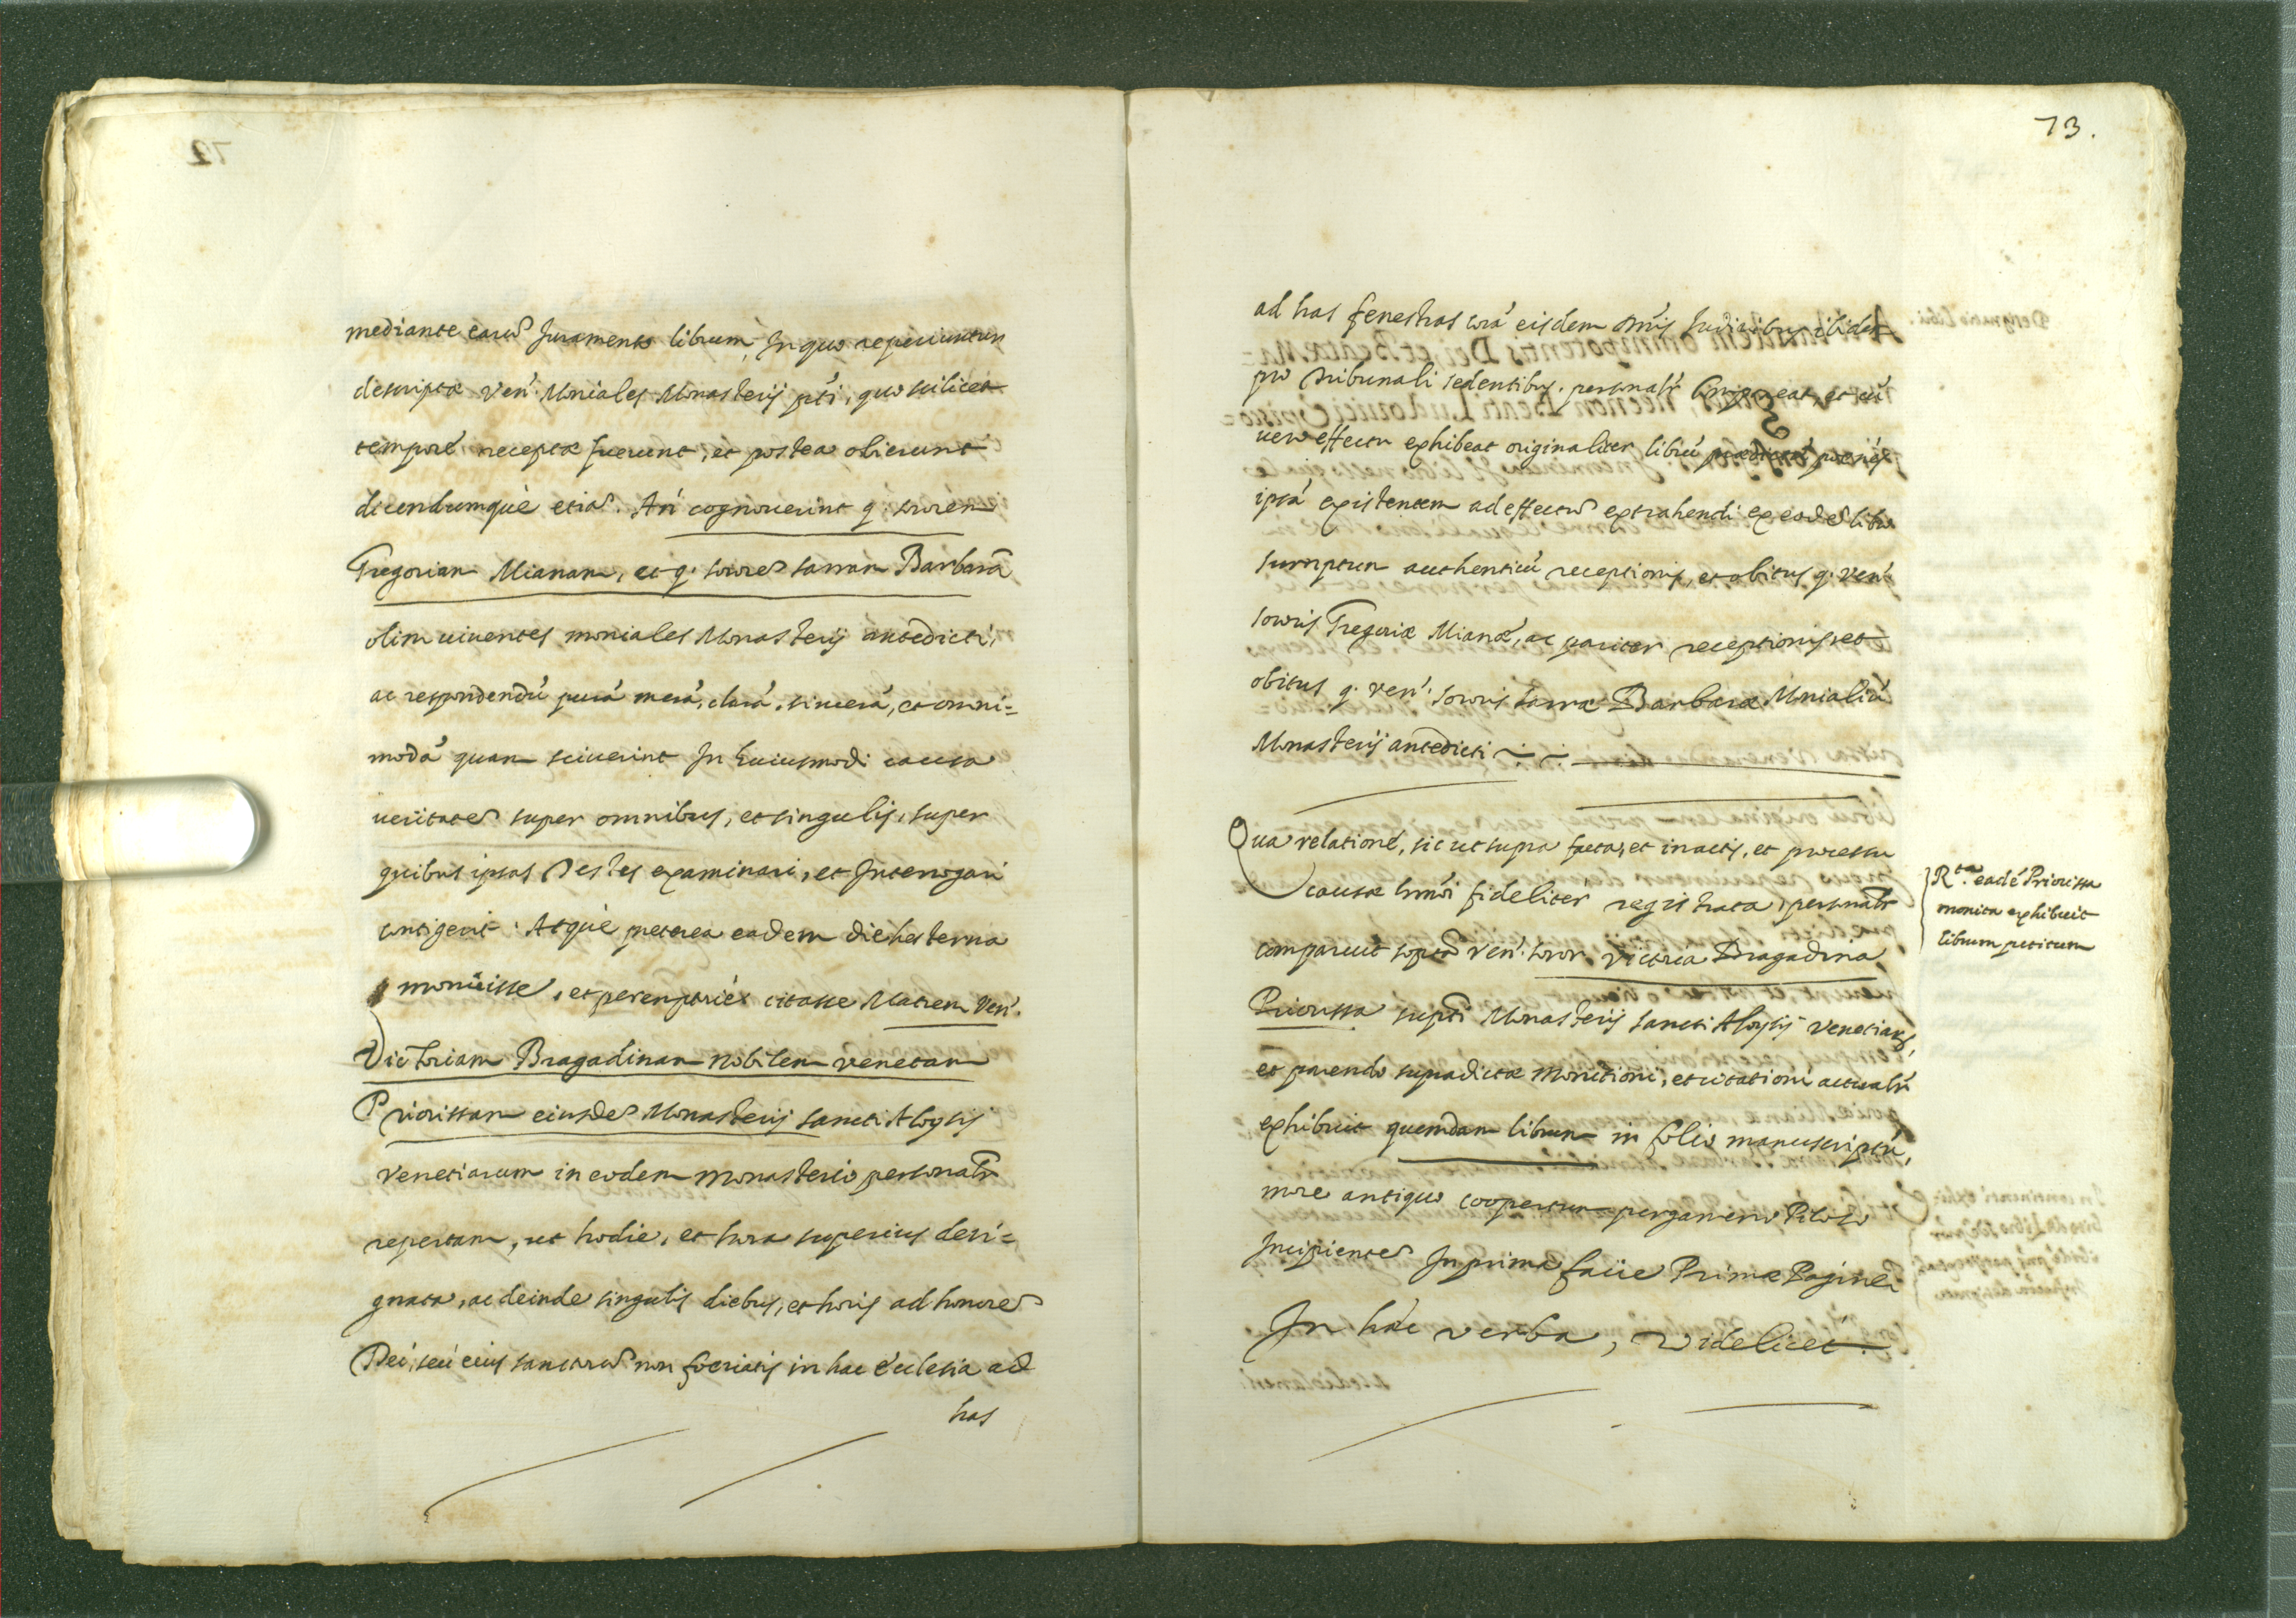 mediante earum Juramento librum, In quo reperiuntur
descriptæ Ven: Moniales Monasterij pti, quo scilicet
tempore receptæ fuerunt, et postea obierunt
dicendumquè etiam. An cognouerint q. sororem
Gregoriam Mianam, et q. sororem Sarram Barbarã
olim uiuentes moniales Monasterij antedicti,
ac respondendũ purã merã, clarã, sincerã, et omni=
modã quam sciuerint In huiusmodi causa
ueritatem super omnibus, et singulis, super
quibus ipsas Testes examinari, et Interrogari
contigerit. Atquè preterea eadem die hesterna
monuisse, et peremptoriè citasse Matrem Ven:
Victoriam Bragadinam nobilem venetam
Priorissam eiusdem Monasterij sancti Aloysij
venetiarum in eodem monasterio personalr
repertam, ut hodie, et hora superius desi=
gnata, ac deinde singulis diebus, et horis ad honorem
Dei, seu eius sanctorum non foeriatis in hac Ecclesia ad
has
73.
ad has fenestras corã eisdem Dnis Iudicibus ibidem
pro tribunali sedentibus. personalr Compareat, et cũ
uero effectu exhibeat originaliter librũ prædictũ penes
ipsã existentem ad effectum extrahendi ex eodem libro
sumptum authenticũ receptionis, et obitus q. Ven:
sororis Gregoriæ Mianæ, ac pariter receptionis, et
obitus q. Ven: sororis Sarræ Barbaræ Monialiũ
Monasterij antedicti
Qua relatione, sic ut supra facta, et in actis, et processu
causæ hmõi fideliter registrata, personalr
comparuit sopta Ven: soror Victoria Bragadina
Priorissa supti Monasterij sancti Aloysij Venetiarũ,
et parendo supradictæ monitioni, et citationi actualr
exhibuit quemdam librum in folio manuscriptũ,
more antiquo coopertum pergameno Piloso
Incipientem In prima facie Primæ Paginæ
In hæc verba, videlicet.
Rta. eadẽ Priorissa
monita exhibuit
librum petitum